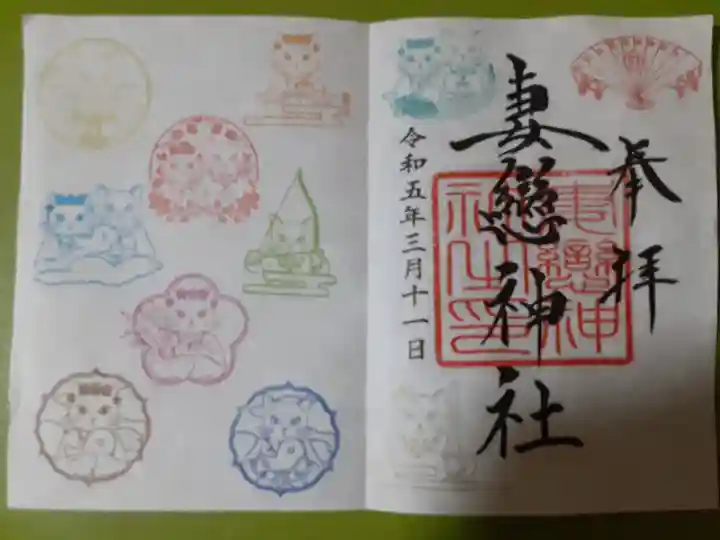 奉拝
妻戀神社
妻戀神
社之印
令和五年三月十一日